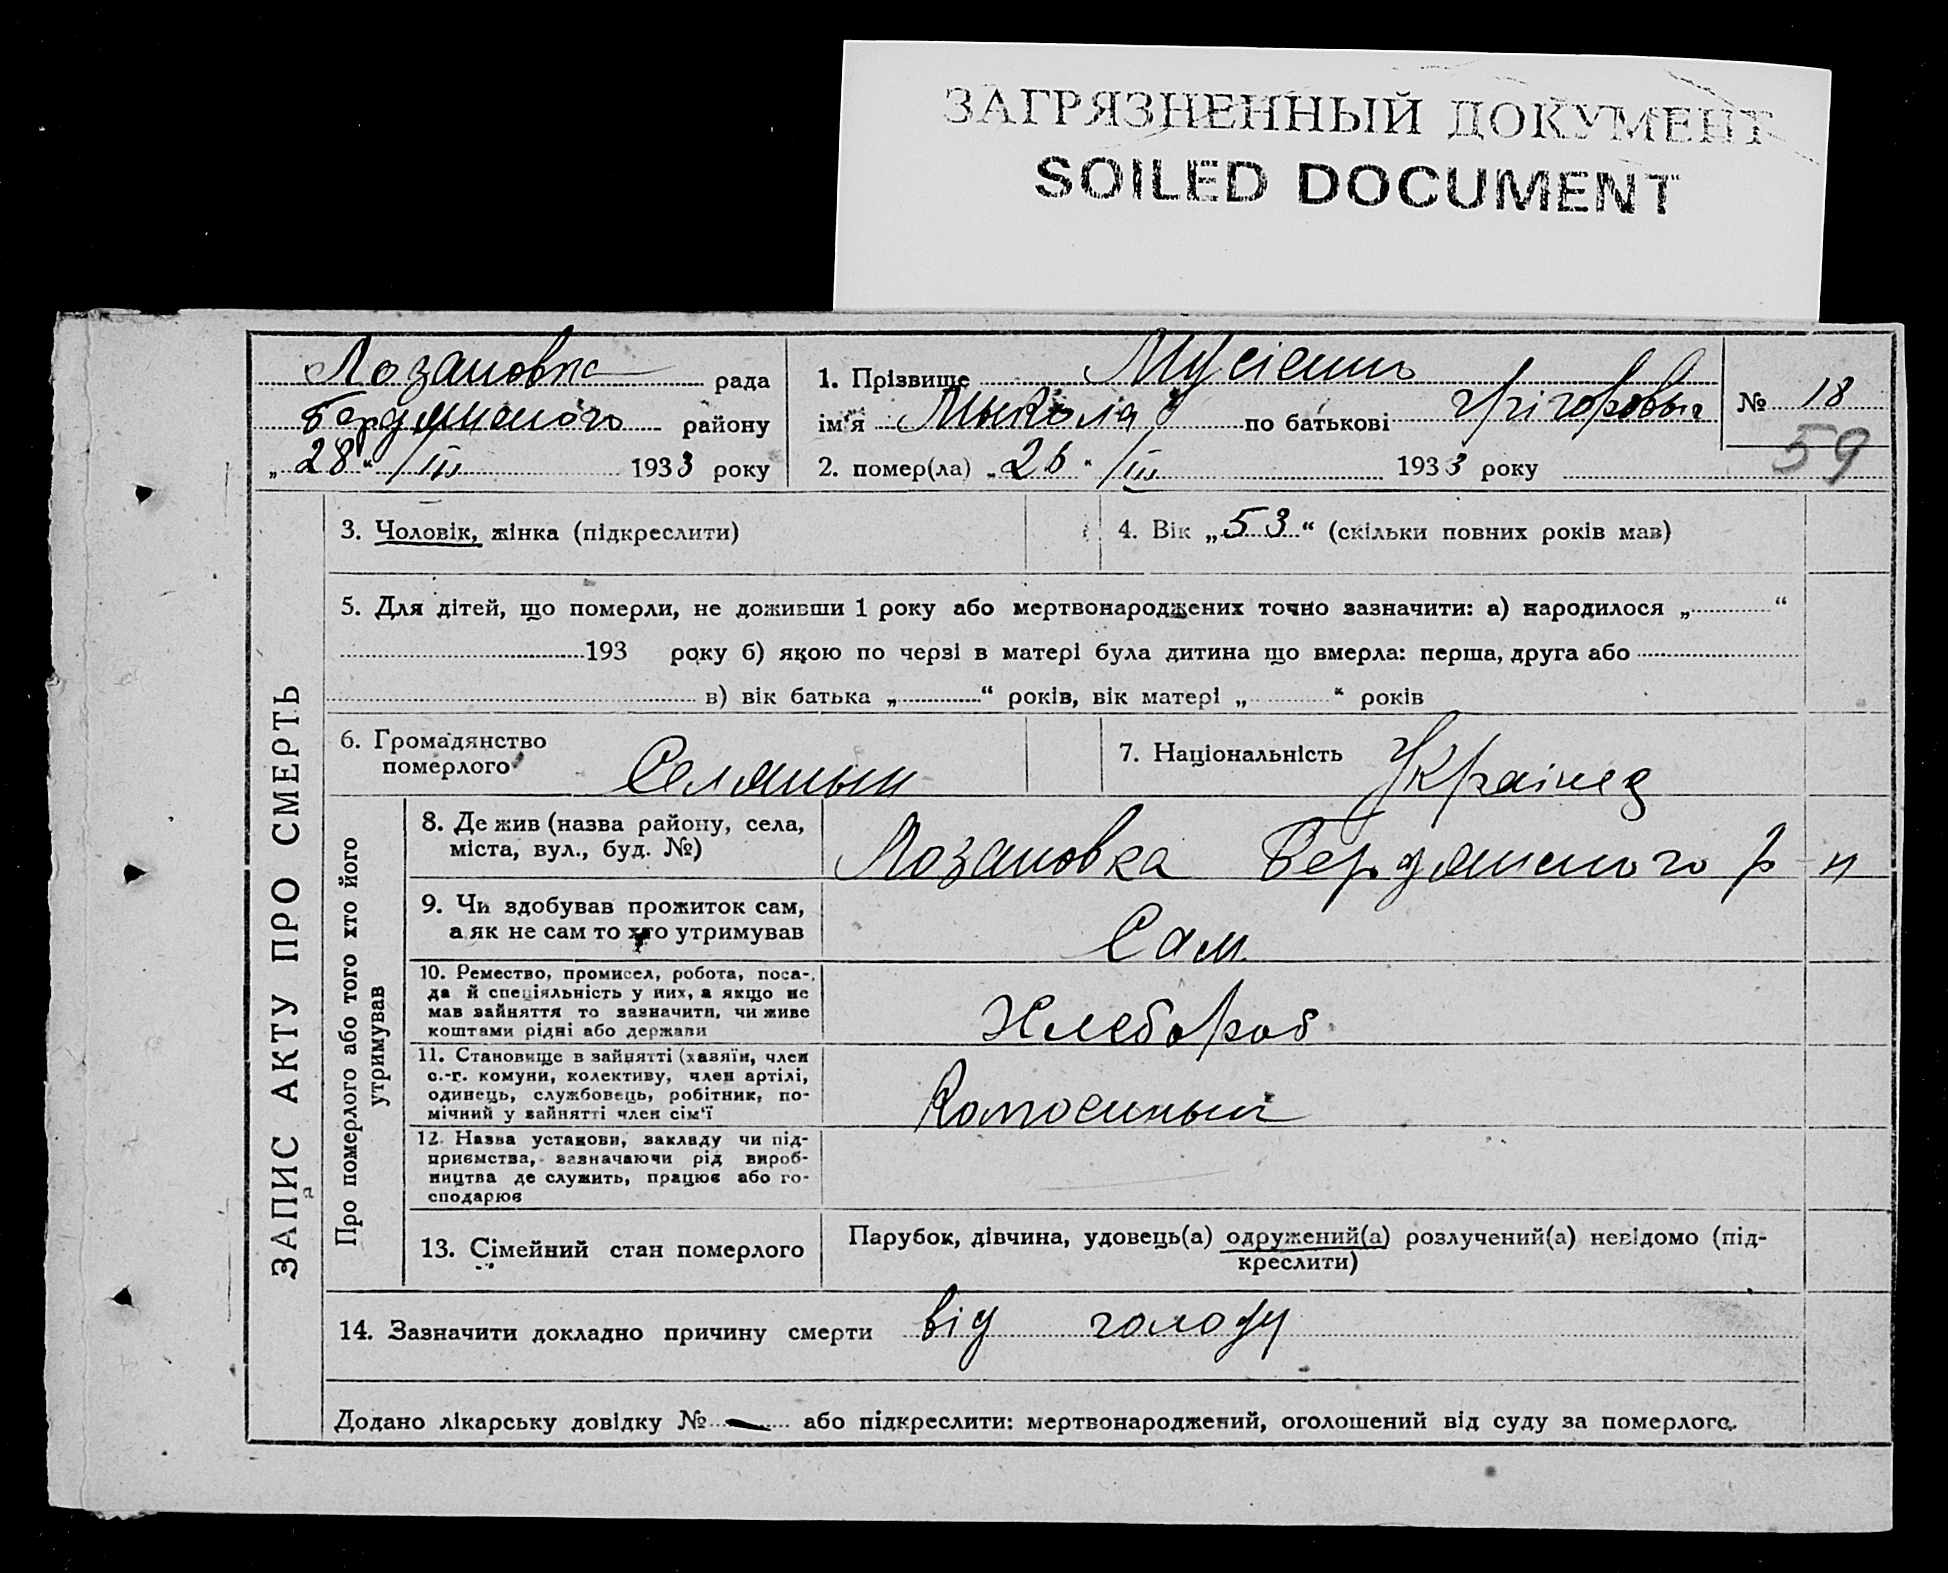 ЗАГРЯЗНЕННЫЙ ДОКУМЕНТ
SOILED DOCUMENT
Лозановка рада
Бердянского району
„28“ /III 1933 року
1. Прізвище Мусіенко
ім'я Мыкола по батькові Грігоровыч
2. помер(ла) „26“ /III 1933 року
№ 18
59
ЗАПИС АКТУ ПРО СМЕРТЬ
3. Чоловік, жінка (підкреслити)
4. Вік „53“ (скільки повних років мав)
5. Для дітей, що померли, не доживши 1 року або мертвонароджених точно зазначити: а) народилося „ “
193 року б) якою по черзі в матері була дитина що вмерла: перша, друга або
в) вік батька „ “ років, вік матері „ “ років
6. Громадянство
померлого Селяный
7. Національність Украінец
Про померлого або того хто його
утримував
8. Де жив (назва району, села,
міста, вул., буд. №)
Лозановка Бердянского р-н
9. Чи здобував прожиток сам,
а як не сам то хто утримував
Сам
10. Ремество, промисел, робота, поса-
да й спеціяльність у них, а якщо не
мав зайняття то зазначити, чи живе
коштами рідні або держави
Хлебороб
11. Становище в зайнятті (хазяїн, член
с.-г. комуни, колективу, член артілі,
одинець, службовець, робітник, по-
мічний у зайнятті член сім'ї
12. Назва установи, закладу чи під-
приємства, зазначаючи рід вироб-
ництва де служить, працює або го-
сподарює
13. Сімейний стан померлого
Парубок, дівчина, удовець(а) одружений(а) розлучений(а) невідомо (під-
креслити)
14. Зазначити докладно причину смерти від голоду
Додано лікарську довідку № — або підкреслити: мертвонароджений, оголошений від суду за померлого.